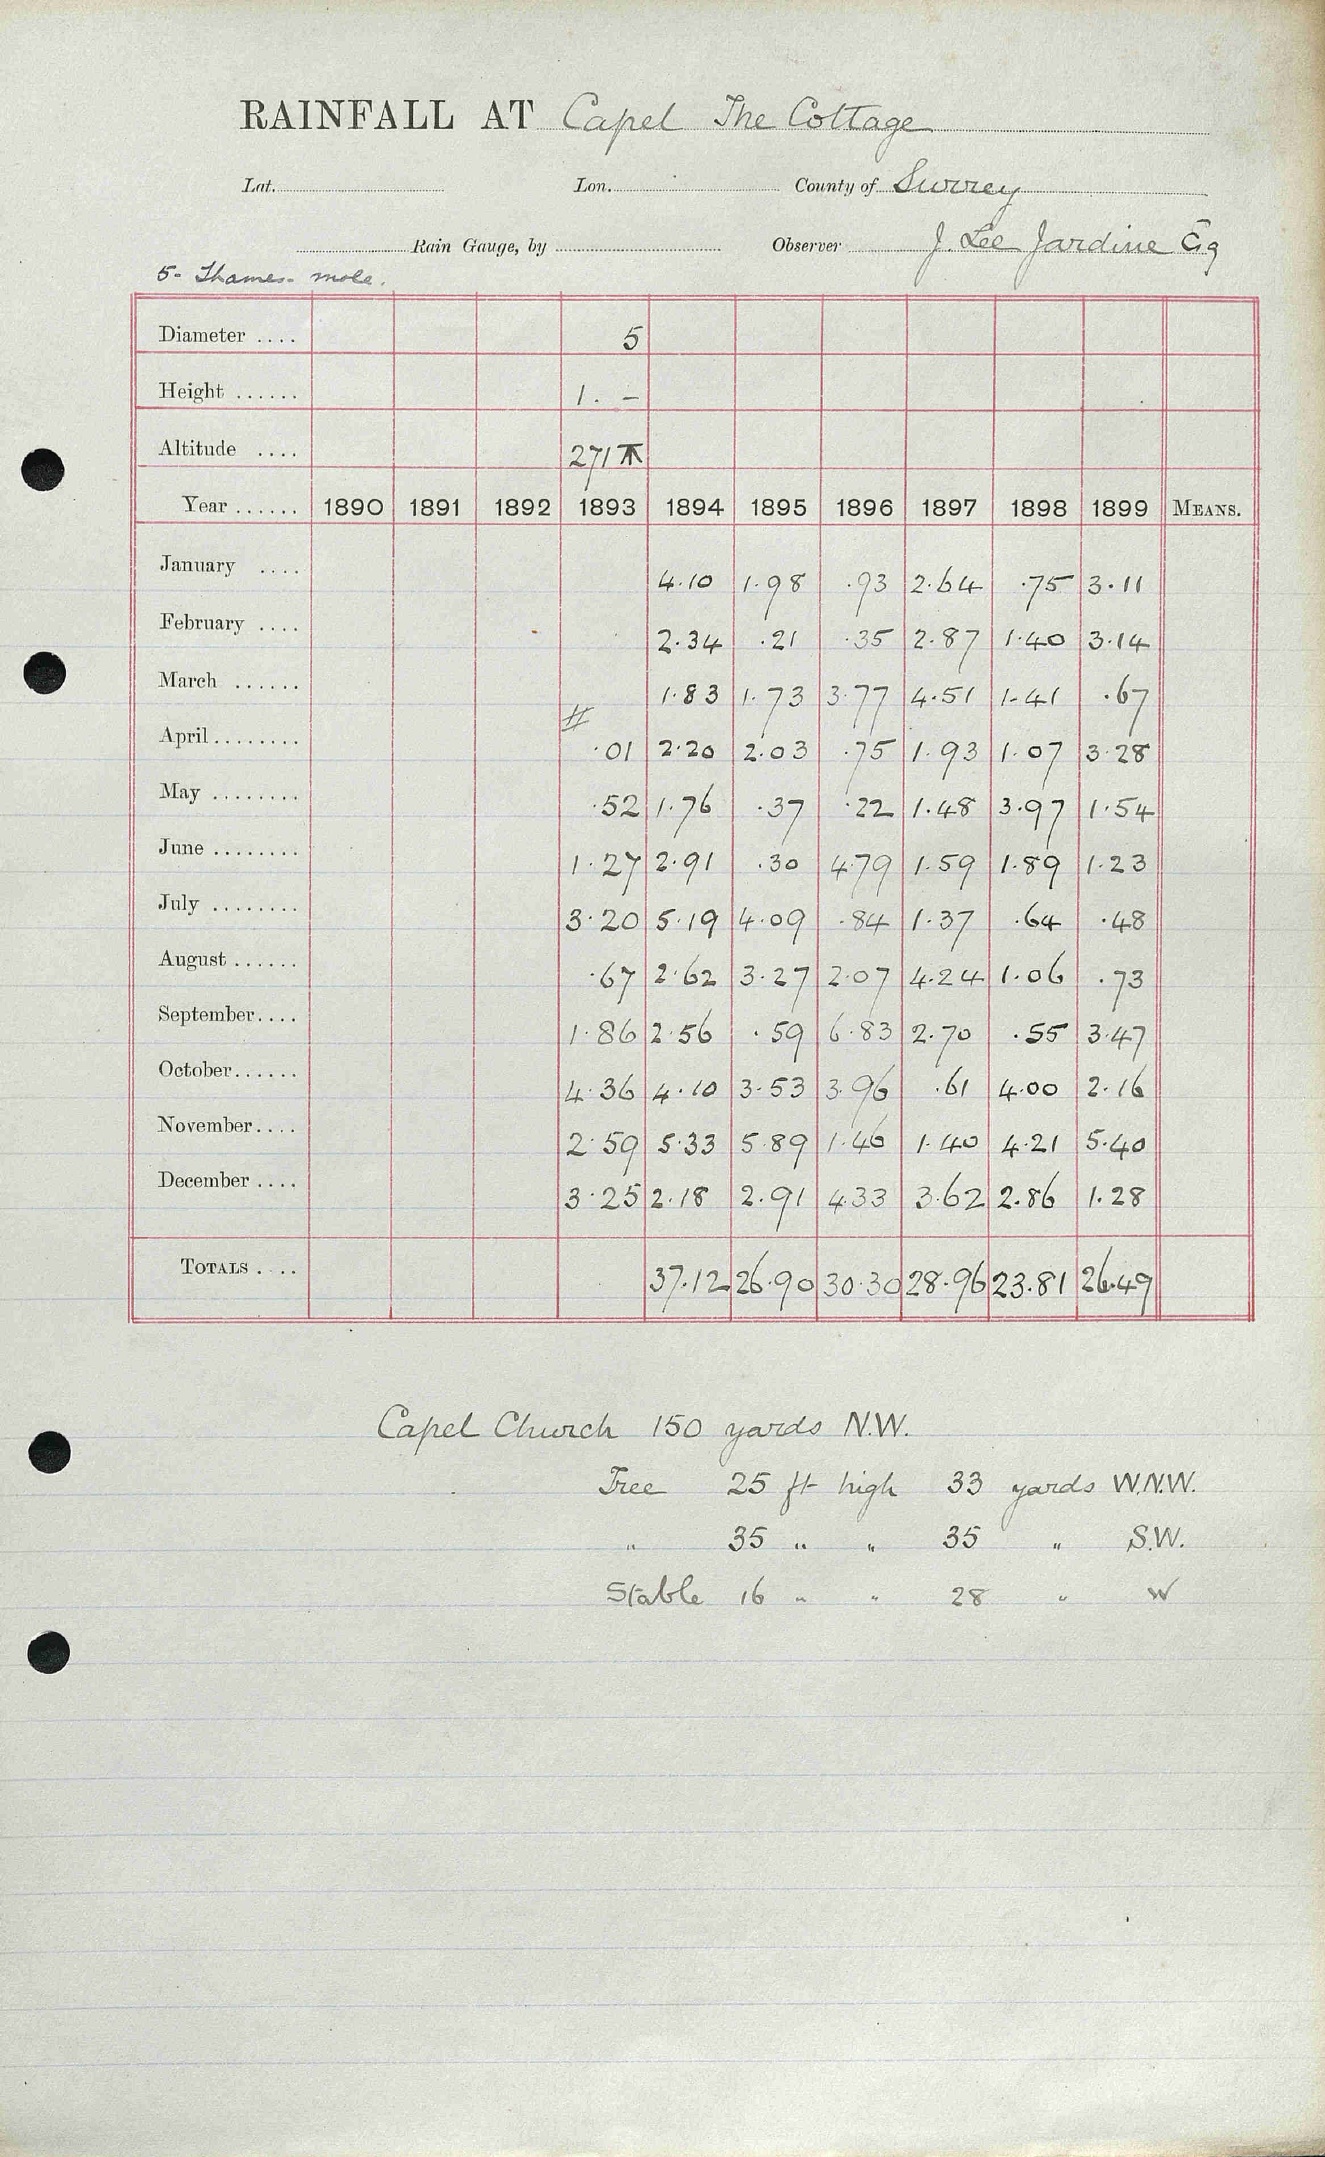 RAINFALL AT Capel The Cottage
Lat. Lon. County of Surrey
Rain Gauge, by Observer J. Lee Jardine Esq
5- Thames- mole.
Diameter .... 5
Height ...... 1. -
Altitude .... 271
Year ...... 1890 1891 1892 1893 1894 1895 1896 1897 1898 1899 MEANS.
January .... 4.10 1.98 .93 2.64 .75 3.11
February .... 2.34 .21 .35 2.87 1.40 3.14
March ...... 1.83 1.73 3.77 4.51 1.41 .67
April........ # .01 2.20 2.03 .75 1.93 1.07 3.28
May ........ .52 1.76 .37 .22 1.48 3.97 1.54
June ........ 1.27 2.91 .30 4.79 1.59 1.89 1.23
July ........ 3.20 5.19 4.09 .84 1.37 .64 .48
August ...... .67 2.62 3.27 2.07 4.24 1.06 .73
September.... 1.86 2.56 .59 6.83 2.70 .55 3.47
October...... 4.36 4.10 3.53 3.96 .61 4.00 2.16
November.... 2.59 5.33 5.89 1.46 1.40 4.21 5.40
December .... 3.25 2.18 2.91 4.33 3.62 2.86 1.28
TOTALS .... 37.12 26.90 30.30 28.96 23.81 26.49
Capel Church 150 yards N.W.
Tree 25 ft high 33 yards W.N.W.
" 35 " " 35 " S.W.
Stable 16 " " 28 " W